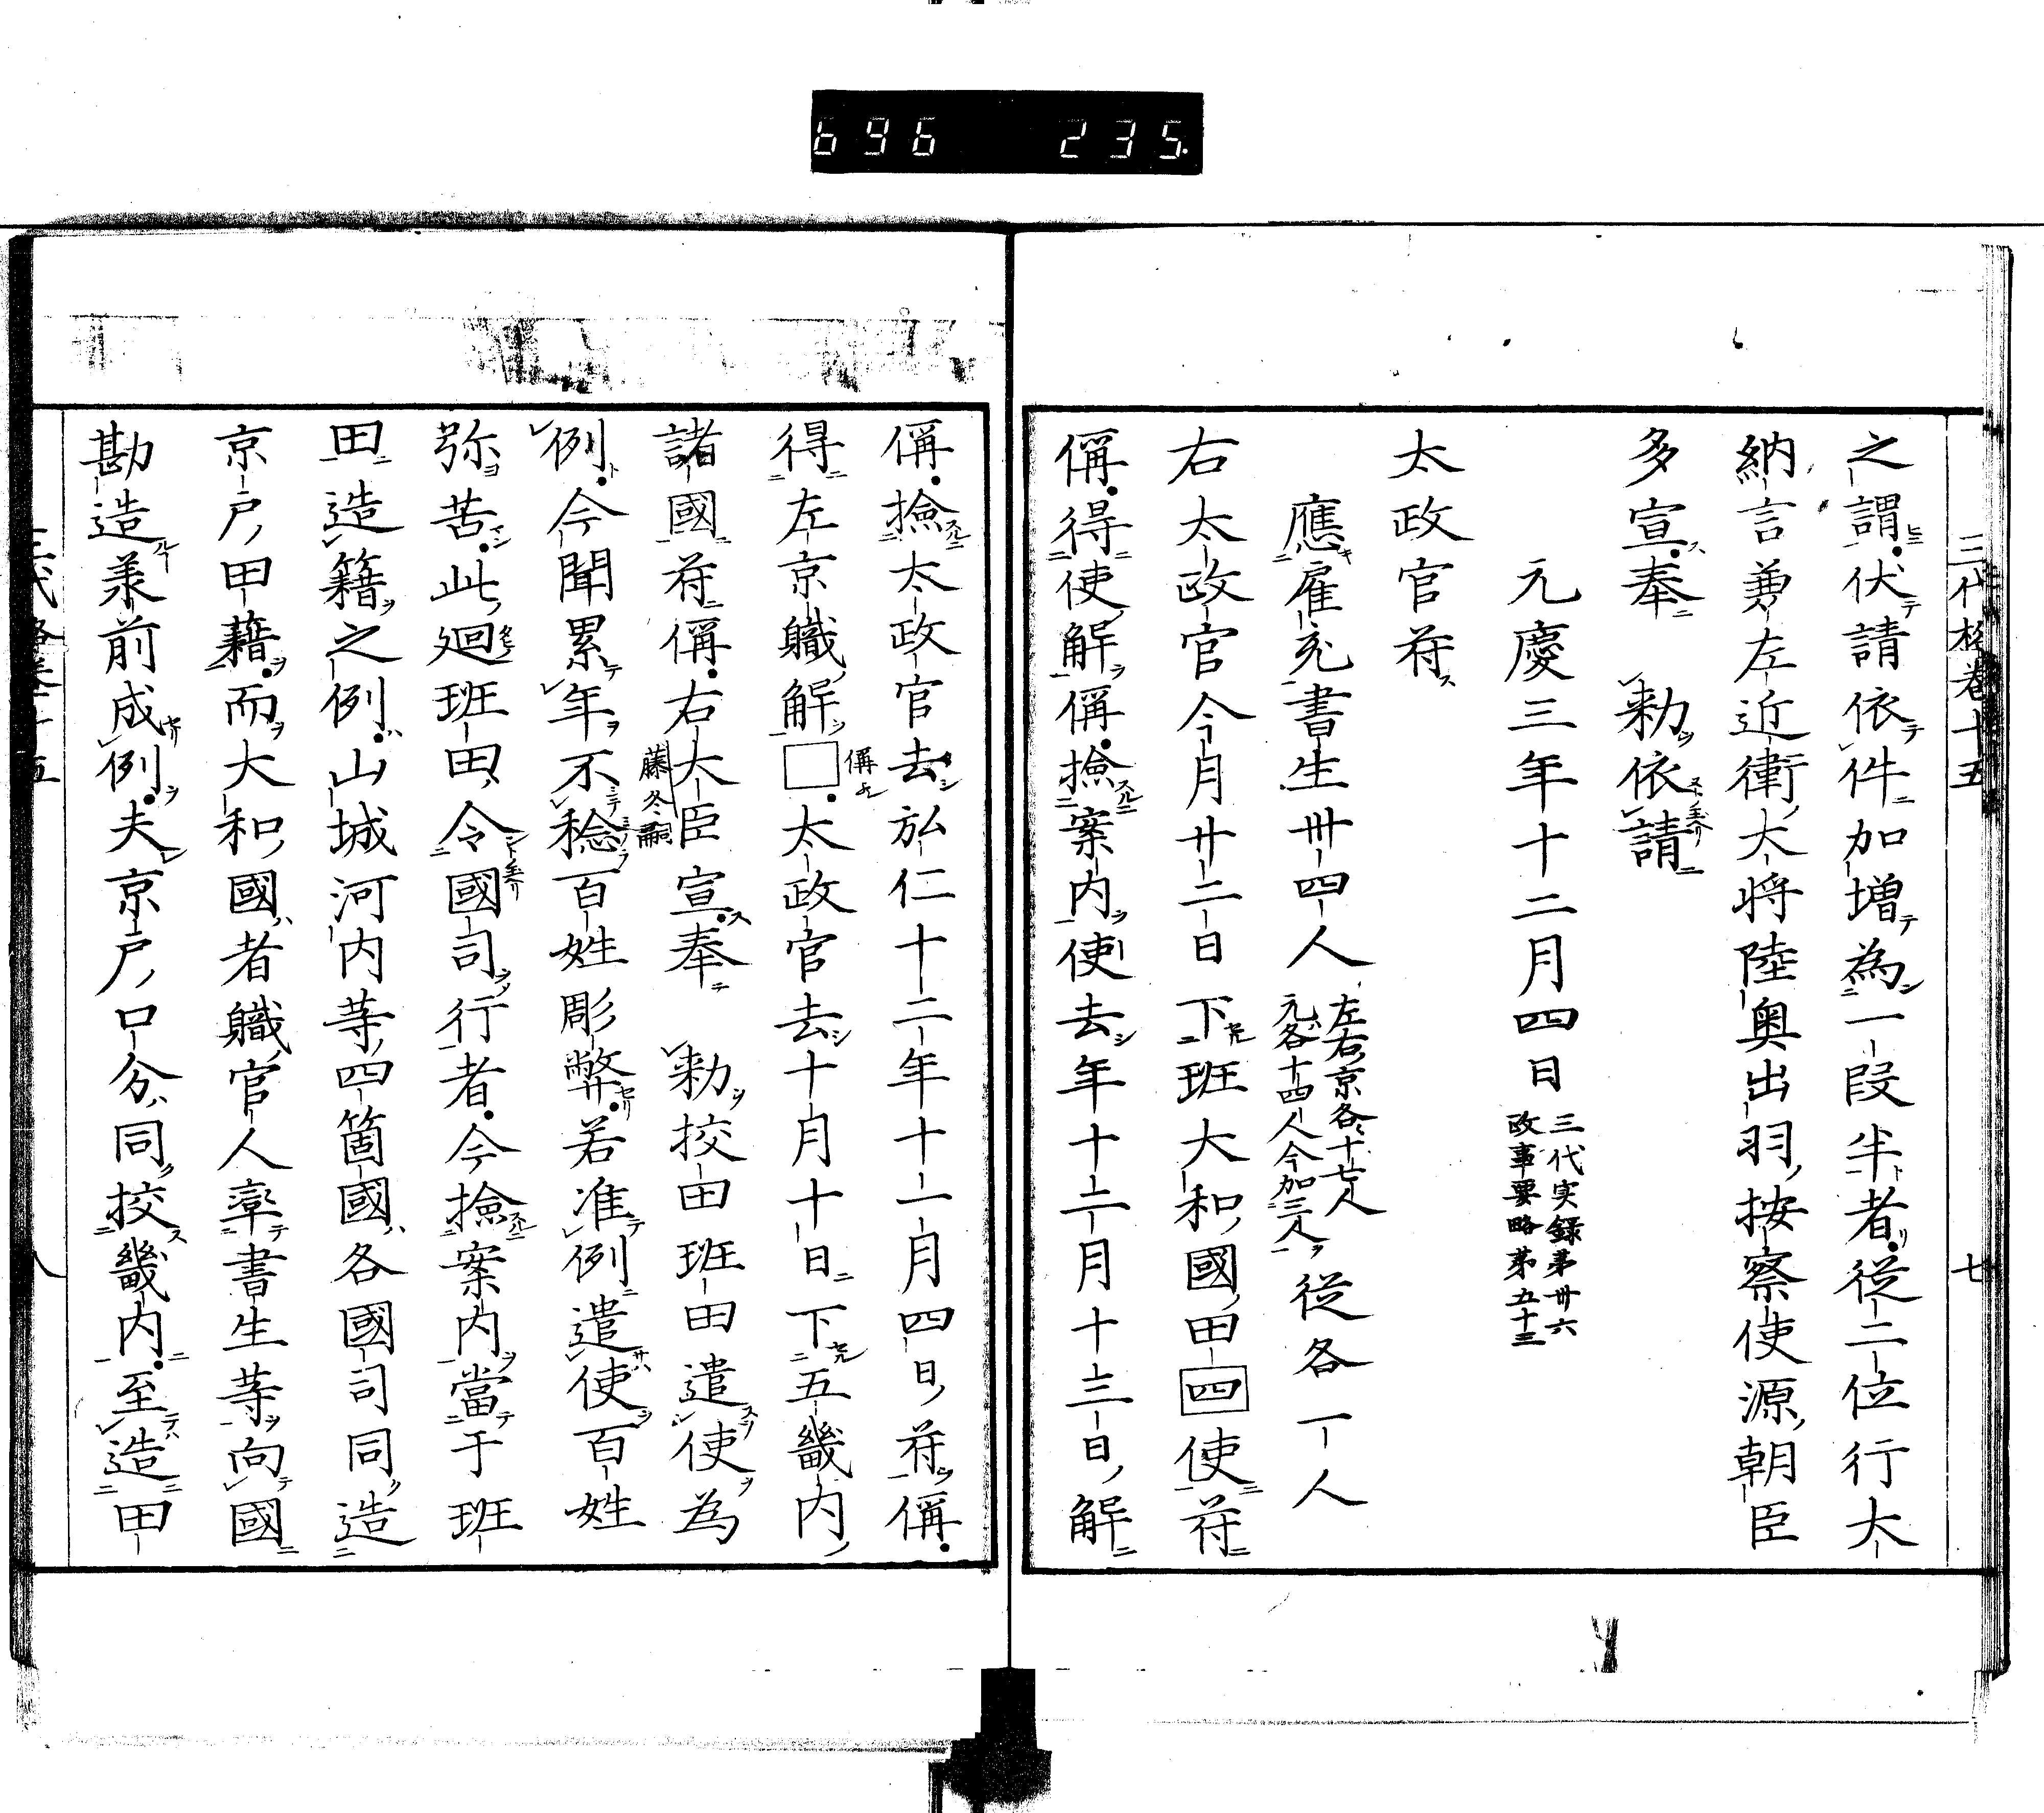 696 235
三代格卷十五 七
之謂伏請依件加增為一段半者從二位行大
納言兼左近衛大将陸奥出羽按察使源朝臣
多宣奉 勅依請
元慶三年十二月四日 三代実録第卅六 政事要略第五十三
太政官符
應雇充書生卅四人 左右京各十七人 元各十四人今加三人 従各一人
右太政官今月廿二日下班大和國田四使符
偁得使解偁撿案内使去年十二月十三日解
偁撿太政官去弘仁十二年十一月四日符偁
得左京職解□太政官去十月十日下五畿内
偁
諸國符偁右大臣宣奉 勅挍田班田遣使為
藤冬嗣
例今聞累年不稔百姓彫弊若准例遣使百姓
弥苦此廻班田令國司行者今撿案内當于班
田造籍之例山城河内等四箇國各國司同造
京戸田籍而大和國者職官人率書生等向國
勘造兼前成例夫京戸口分同挍畿内至造田